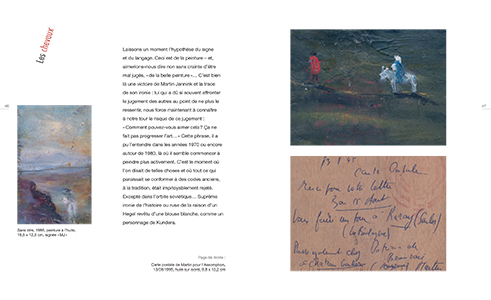 Les chevaux
Laissons un moment l'hypothèse du signe
et du langage. Ceci est de la peinture – et,
aimerions-nous dire non sans crainte d'être
mal jugés, « de la belle peinture »... C'est bien
là une victoire de Martin Jannink et la trace
de son ironie : lui qui a dû si souvent affronter
le jugement des autres au point de ne plus le
ressentir, nous force maintenant à connaître
à notre tour le risque de ce jugement :
« Comment pouvez-vous aimer cela ? Ça ne
fait pas progresser l'art... » Cette phrase, il a
pu l'entendre dans les années 1970 ou encore
autour de 1980, là où il semble commencer à
peindre plus activement. C'est le moment où
l'on disait de telles choses et où tout ce qui
paraissait se conformer à des codes anciens,
à la tradition, était impitoyablement rejeté.
Excepté dans l'orbite soviétique... Suprême
ironie de l'histoire ou ruse de la raison d'un
Hegel revêtu d'une blouse blanche, comme un
personnage de Kundera.
Sans titre, 1985, peinture à l'huile,
18,5 x 12,5 cm, signée « MJ »
Page de droite :
Carte postale de Martin pour l'Assomption,
13/08/1995, huile sur isorel, 9,8 x 13,2 cm
Carte Postale
Merci pour votre lettre
Bon 15 Août
Vous faire au four à